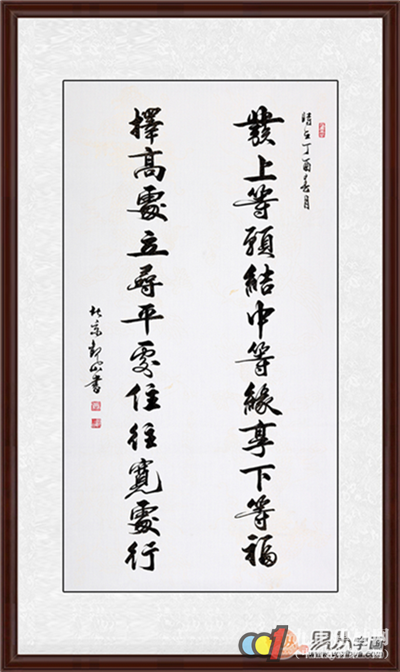 時在丁酉春月
發上等願結中等緣享下等福
擇高處立尋平處住往寬處行
北京 山書